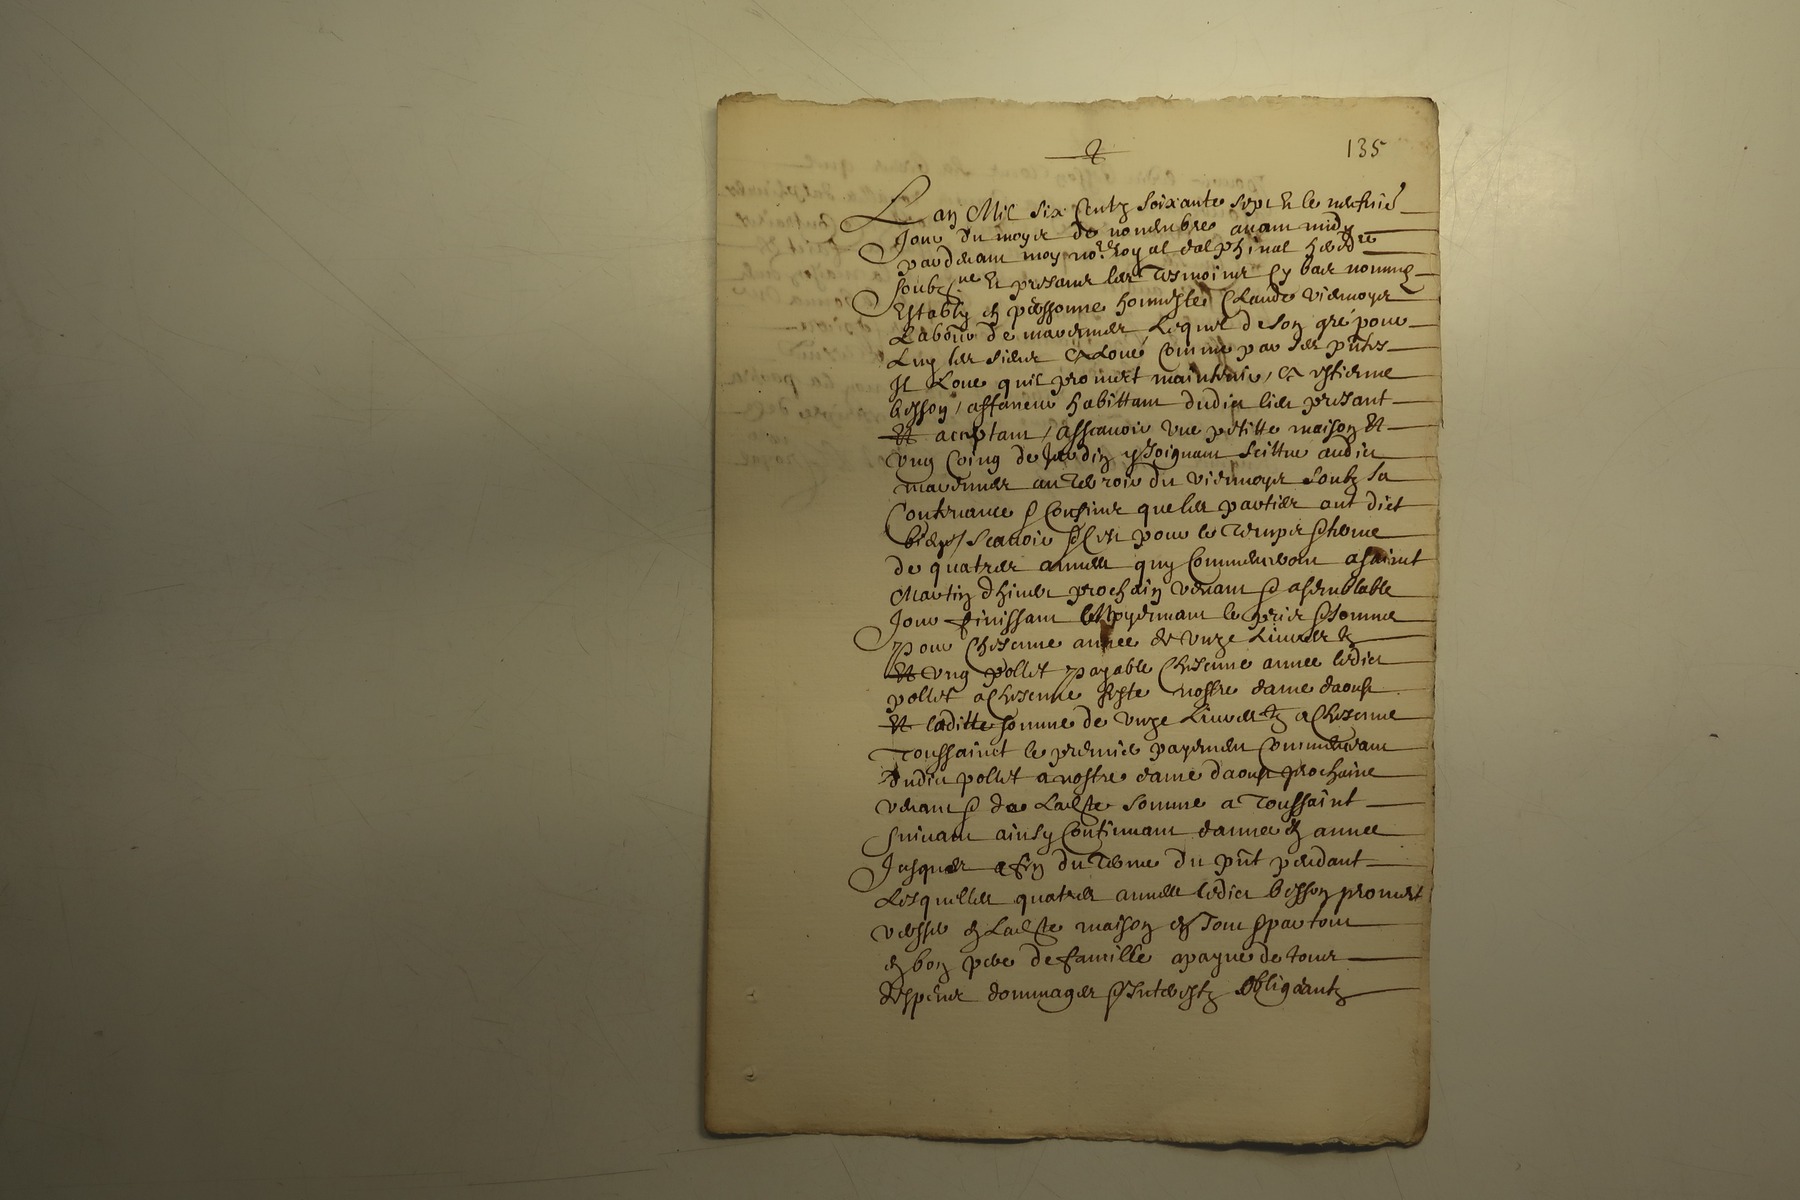 135
L an Mil six centz soixante sept & le
Jour du moys de novembre avant midy
pardevant moy no.re royal dalphinal
soubz.ne & presans les tesmoins cy bas nommez
Estably en personne honneste Claude Viermoys
Laboure de lequel de son gré pour
Luy les siens a Loué comme par ses pntes
Il Loue quil promect maintenir, a estienne
besson, affaneur habittant dudict lieu presant
Et acceptant, asscavoir une petitte maison et
ung coing de Jardin y Joignant scittue audict
au terroir du viermoys soubz sa
Contenance & confins que les parties ont dict
bien scavoir & cest pour le temps & terme
de quatres annees quy commenceront a sainct
Martin dhiver prochain venant & a semblable
Jour finissant le pris & somme
pour chescune annee de unze Livres tz
Et ung pollet payable chescune annee ledict
pollet a chescune feste nostre dame daoust
Et laditte somme de unze Livres tz a chescune
Toussainct le premier payement commenceant
dudict pollet a nostre dame daoust prochaine
venant & de Ladte somme a Toussaint
suivant ainsy continuant dannee en annee
Jusques a fin du terme du pnt pendant
Lesquelles quatres annees ledict besson promect
verser en Ladte maison en tout & par tout
en bon pere de famille a payne de tous
despens dommages & Interestz obligeantz